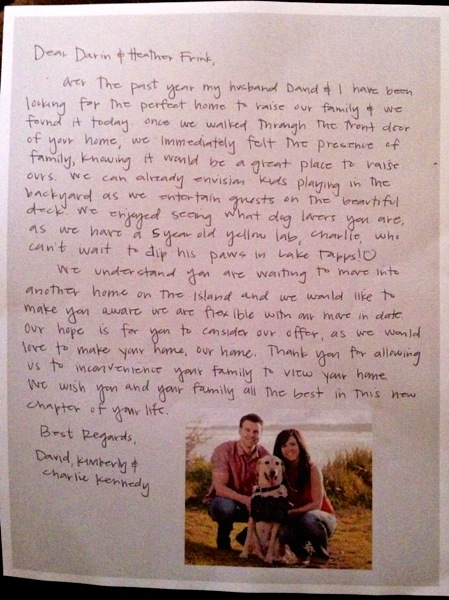 Dear Darin & Heather Frink,
Over the past year my husband David & I have been
looking for the perfect home to raise our family & we
found it today. Once we walked through the front door
of your home, we immediately felt the presence of
family, knowing it would be a great place to raise
ours. We can already envision kids playing in the
backyard as we entertain guests on the beautiful
deck. We enjoyed seeing what dog lovers you are,
as we have a 5 year old yellow lab, Charlie, who
can't wait to dip his paws in Lake Tapps!♡
We understand you are waiting to move into
another home on the Island and we would like to
make you aware we are flexible with our move in date.
Our hope is for you to consider our offer, as we would
love to make your home, our home. Thank you for allowing
us to inconvenience your family to view your home.
We wish you and your family all the best in this new
chapter of your life.
Best Regards,
David, Kimberly &
Charlie Kennedy